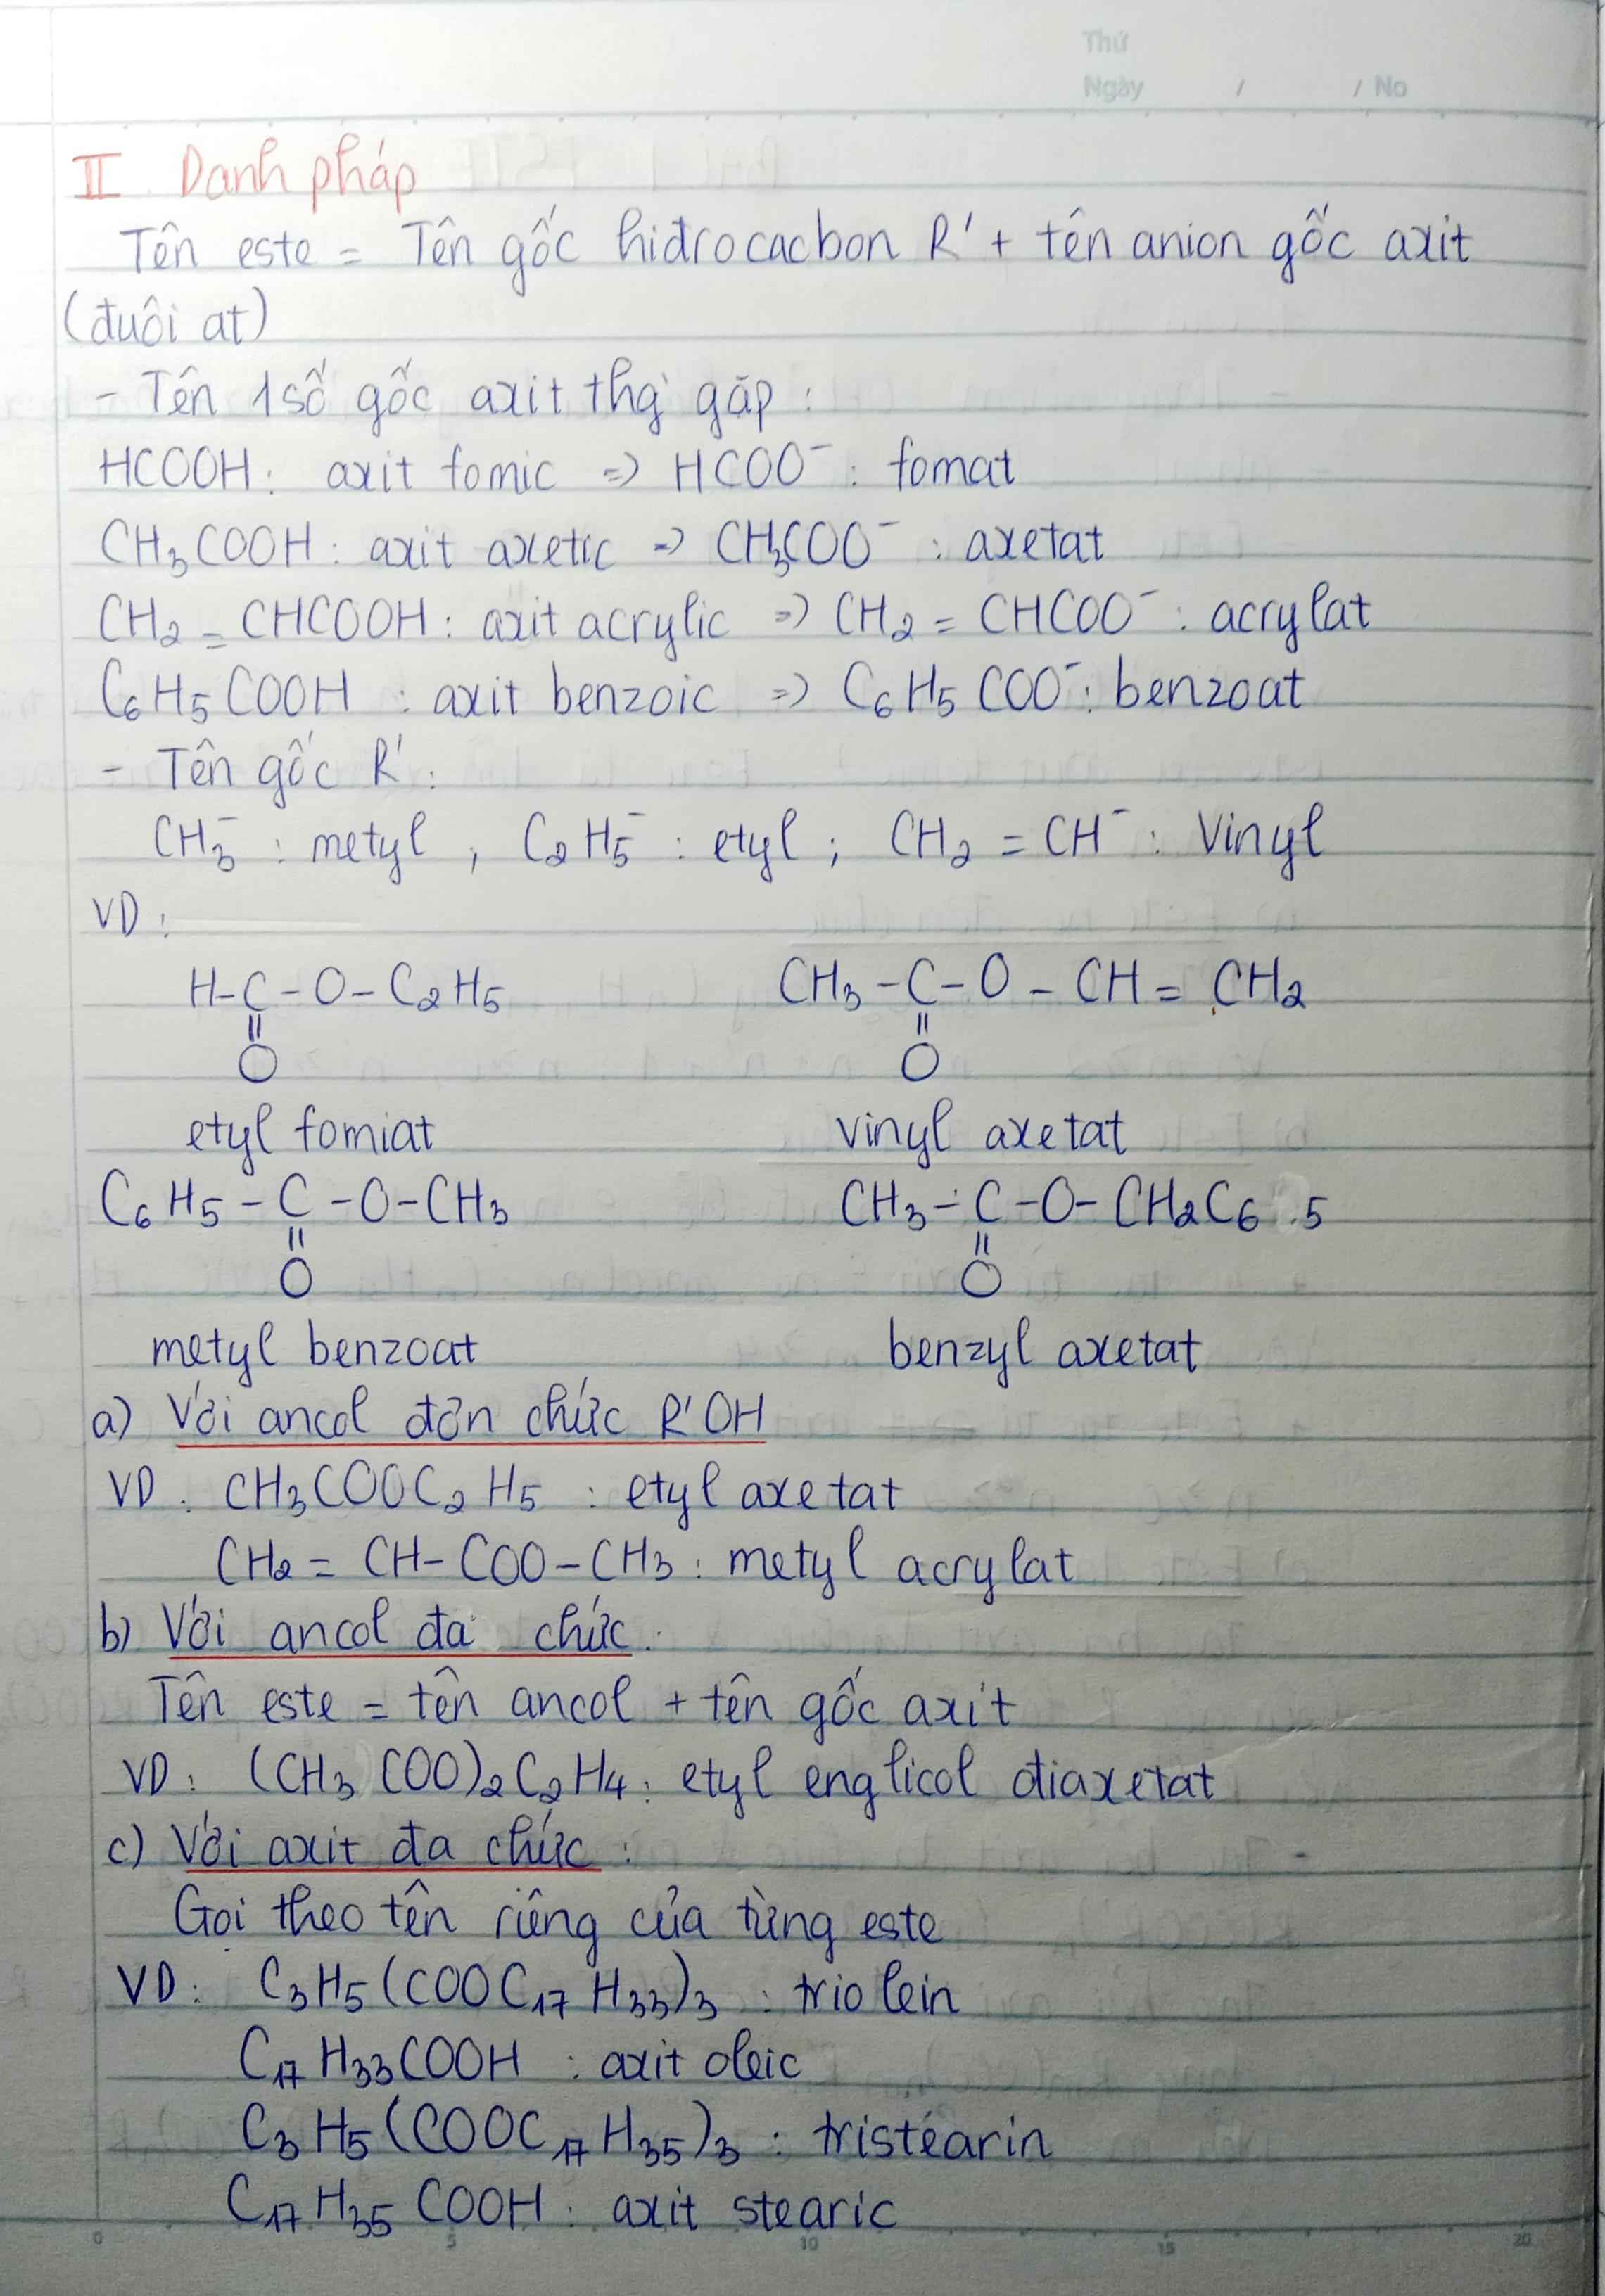 Thứ
Ngày / / No
II. Danh pháp
Tên este = Tên gốc hiđrocacbon R' + tên anion gốc axit
(đuôi at)
- Tên 1 số gốc axit thg` gặp :
HCOOH : axit fomic => HCOO⁻ : fomat
CH₃COOH : axit axetic => CH₃COO⁻ : axetat
CH₂ = CHCOOH : axit acrylic => CH₂ = CHCOO⁻ : acrylat
C₆H₅COOH : axit benzoic => C₆H₅COO⁻ : benzoat
- Tên gốc R' :
CH₃⁻ : metyl , C₂H₅⁻ : etyl ; CH₂ = CH⁻ : Vinyl
VD :
H-C-O-C₂H₅ CH₃-C-O-CH=CH₂
|| ||
O O
etyl fomiat vinyl axetat
C₆H₅-C-O-CH₃ CH₃-C-O-CH₂C₆ 5
|| ||
O O
metyl benzoat benzyl axetat
a) Với ancol đơn chức R'OH
VD : CH₃COOC₂H₅ : etyl axetat
CH₂ = CH-COO-CH₃ : metyl acrylat
b) Với ancol đa chức.
Tên este = tên ancol + tên gốc axit
VD : (CH₃COO)₂C₂H₄ : etyl englicol điaxetat
c) Với axit đa chức :
Gọi theo tên riêng của từng este
VD : C₃H₅(COOC₁₇H₃₃)₃ : triolein
C₁₇H₃₃COOH : axit oleic
C₃H₅(COOC₁₇H₃₅)₃ : tristéarin
C₁₇H₃₅COOH : axit stearic
0 5 10 15 20